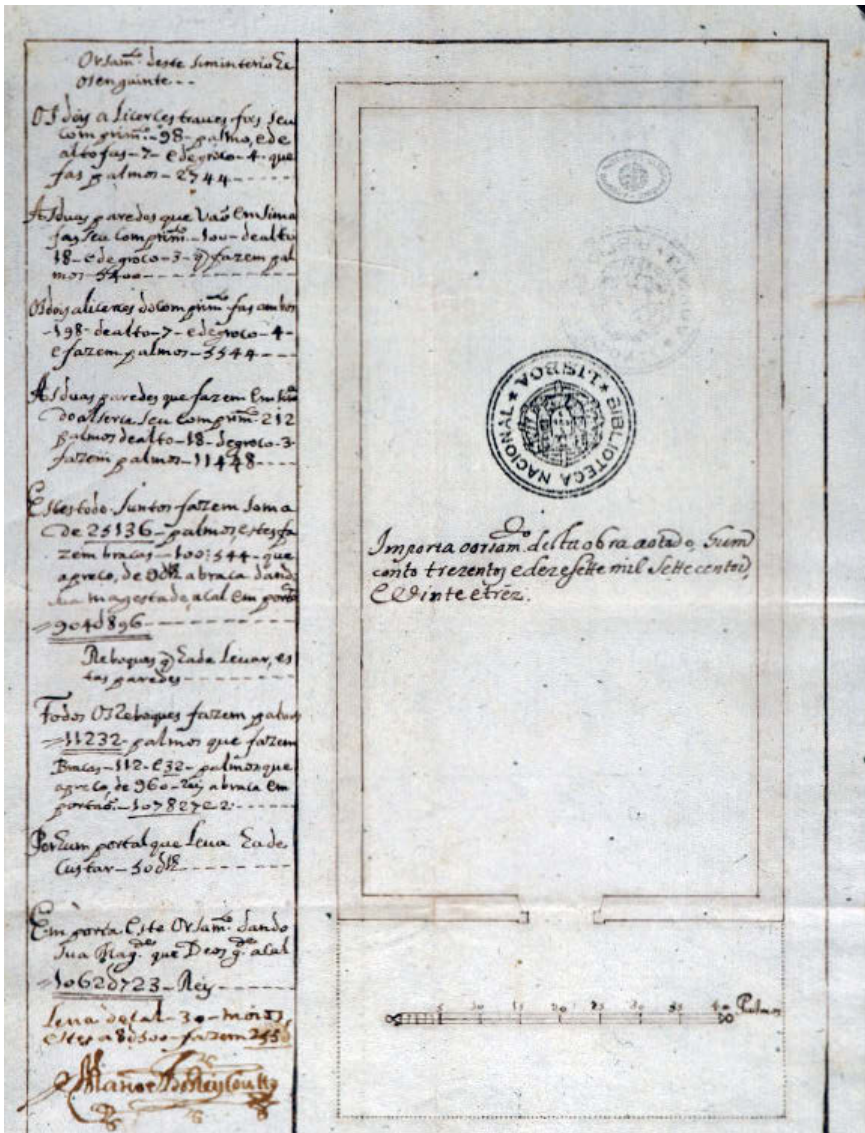 Orsam.to deste siminterio he
o Senguinte - -
Os dois alicerces traves fas seu
comprim.to - 98 - palmo, e de
alto fas - 7 - e de groco - 4 - que
fas palmos - 2744 - - - - -
As duas paredes que vaõ em sima
fas seu comprim.to - 100 - de alto
18 - e de groco - 3 - q fazem pal
mos - 5400 - - - - - - - -
Os dois alicerces do comprim.to fas ambos
- 198 - de alto - 7 - e de groco - 4 -
e fazem palmos - 5544 - - -
As duas paredes que fazem em sima
do alserce seu comprim.to 212
palmos de alto - 18 - de groco - 3 -
fazem palmos - 11448 - - - -
Estes todo Juntos fazem soma
de 25136 - palmos, estes fa
zem bracas - 100: 544 - que
a preco, de 9 a braca dando
sua magestade, a cal em porta
= 904 896 - - - - - - - -
Reboques q hade Levar, es
tas paredes - - - - - - - -
Todos Os Reboques fazem palmos
= 11232 - palmos que fazem
Bracas - 112 - e 32 - palmos que
a preco, de 960 - Reis a braca em
porta - 107827 2: - - - - -
Por hum portal que Leva hade
Custar - 50 - - - - - -
Em porta Este Orsam.to dando
Sua Mag.de que Deos g.de a cal
= 1062 723 - Reis - - - -
Leva de cal - 30 - moios,
estes a 8 500 - fazem 255
Manoel do Couto
BIBLIOTECA NACIONAL ★ LISBOA ★
Importa o orsam.to desta obra ao todo, hum
conto trezentos e dezesette mil settecentos,
e vinte e trez.
5 10 15 20 25 30 35 40 Palmos